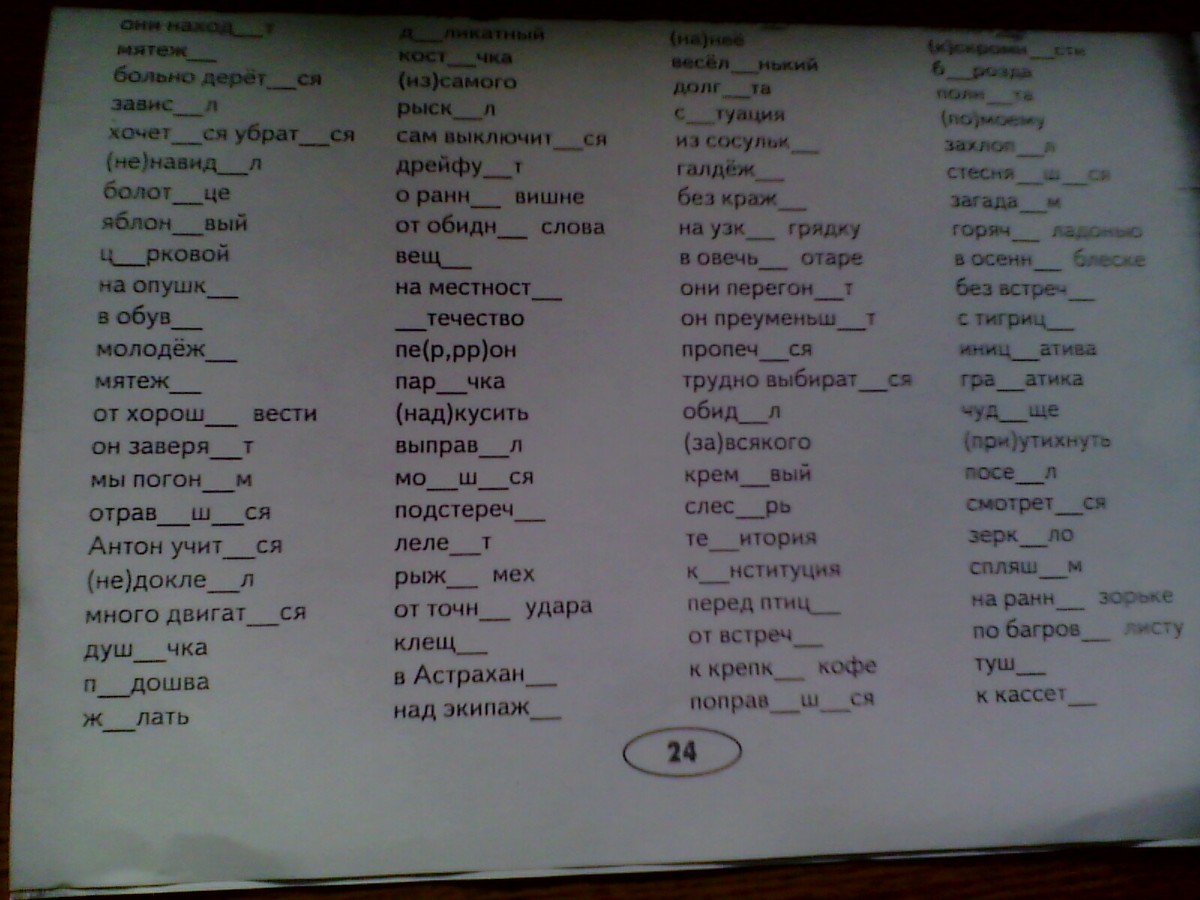 они наход__т
мятеж__
больно дерёт__ся
завис__л
хочет__ся убрат__ся
(не)навид__л
болот__це
яблон__вый
ц__рковой
на опушк__
в обув__
молодёж__
мятеж__
от хорош__ вести
он заверя__т
мы погон__м
отрав__ш__ся
Антон учит__ся
(не)докле__л
много двигат__ся
душ__чка
п__дошва
ж__лать
д__ликатный
кост__чка
(из)самого
рыск__л
сам выключит__ся
дрейфу__т
о ранн__ вишне
от обидн__ слова
вещ__
на местност__
__течество
пе(р,рр)он
пар__чка
(над)кусить
выправ__л
мо__ш__ся
подстереч__
леле__т
рыж__ мех
от точн__ удара
клещ__
в Астрахан__
над экипаж__
(на)неё
весёл__нький
долг__та
с__туация
из сосульк__
галдёж__
без краж__
на узк__ грядку
в овечь__ отаре
они перегон__т
он преуменьш__т
пропеч__ся
трудно выбират__ся
обид__л
(за)всякого
крем__вый
слес__рь
те__итория
к__нституция
перед птиц__
от встреч__
к крепк__ кофе
поправ__ш__ся
б__розда
полн__та
(по)моему
захлоп__л
стесня__ш__ся
загада__м
горяч__ ладонью
в осенн__ блеске
без встреч__
с тигриц__
иниц__атива
гра__атика
чуд__ще
(при)утихнуть
посе__л
смотрет__ся
зерк__ло
спляш__м
на ранн__ зорьке
по багров__ листу
туш__
к кассет__
24